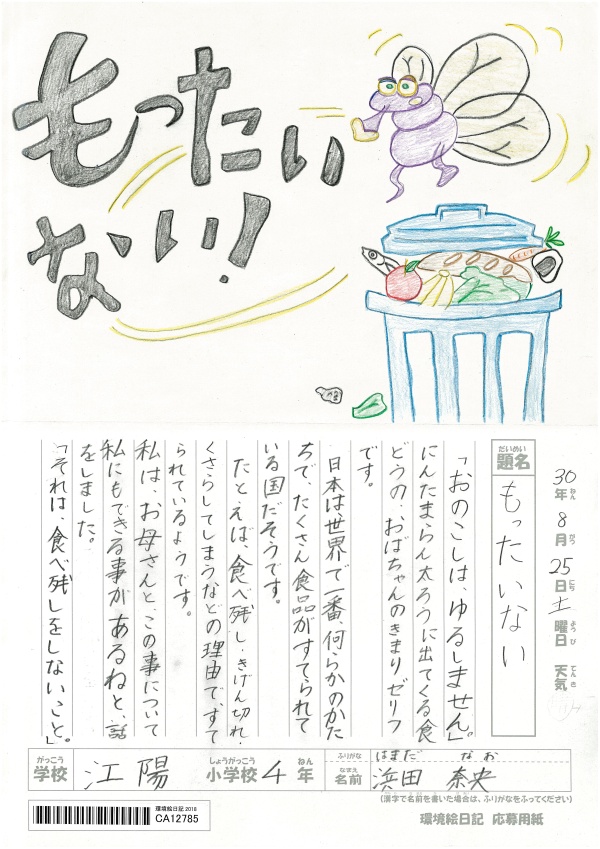 もったい
ない!
30年8月25日土曜日 天気
ねん がつ にち ようび てんき
だいめい
題名
もったいない
「おのこしは、ゆるしません。」
にんたまらん太ろうに出てくる食
どうの、おばちゃんのきまりゼリフ
です。
日本は、世界で一番、何らかのかた
ちで、たくさん食品がすてられて
いる国だそうです。
たとえば、食べ残し、きげん切れ、
くさらしてしまうなどの理由で、すて
られているようです。
私は、お母さんと、この事について
私にもできる事があるねと、話
をしました。
「それは、食べ残しをしないこと。」
がっこう しょうがっこう ねん
学校 江陽 小学校 4年
ふりがな はまだ なお
なまえ
名前 浜田 奈央
(漢字で名前を書いた場合は、ふりがなをふってください)
環境絵日記 2018
CA12785
環境絵日記 応募用紙